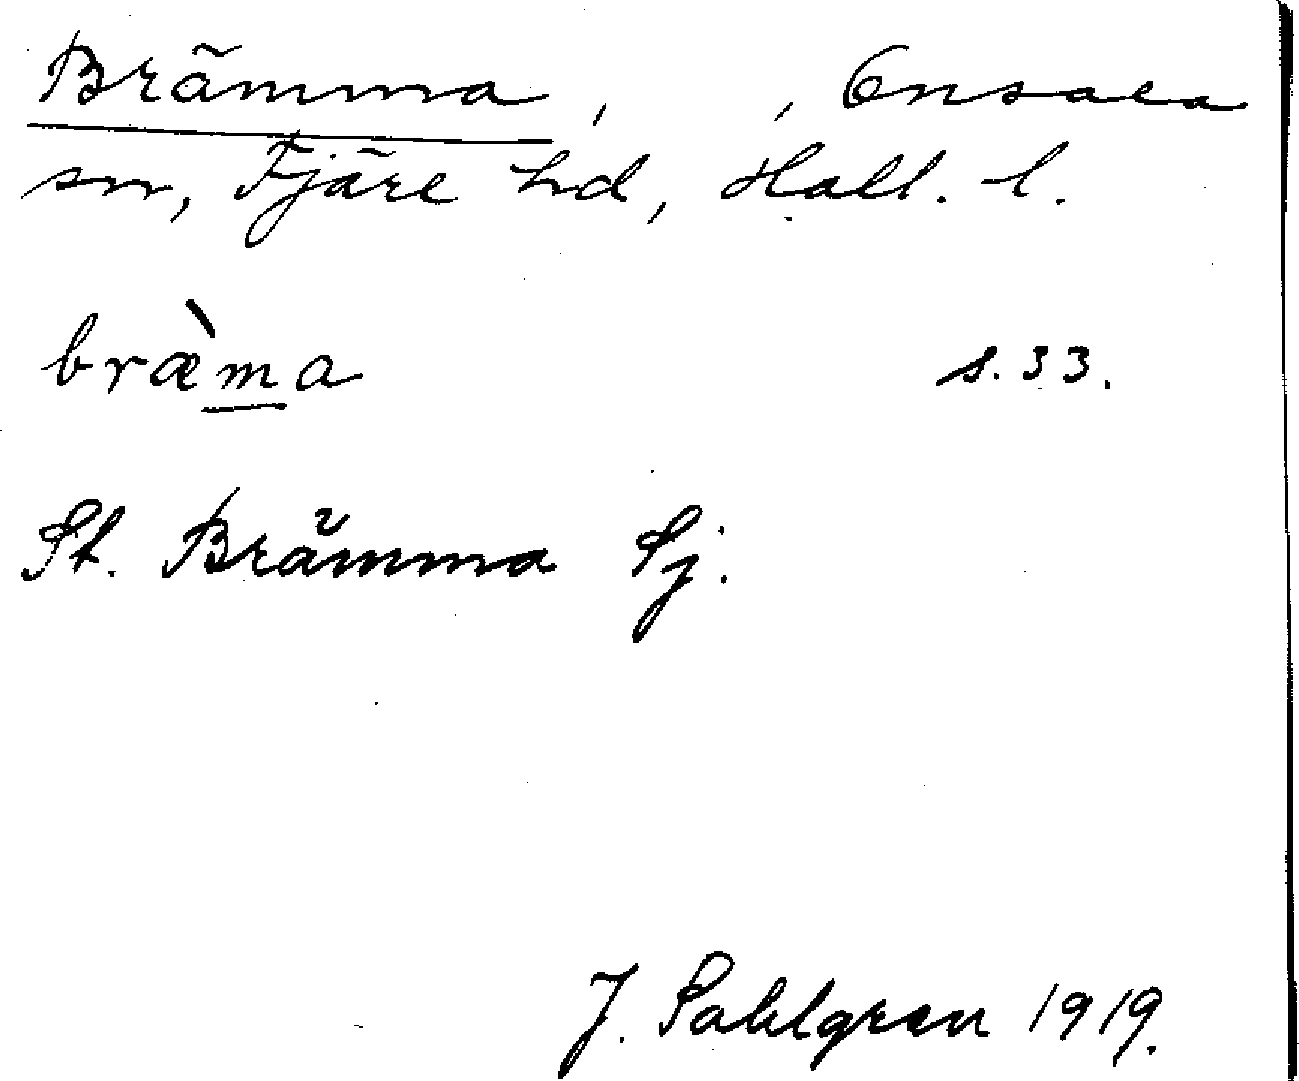 Brämma, , Onsala
sn, Fjäre hd, Hall. l.
bræ̀m̲a s. 33.
St. Brämma Sj.
J. Sahlgren 1919.